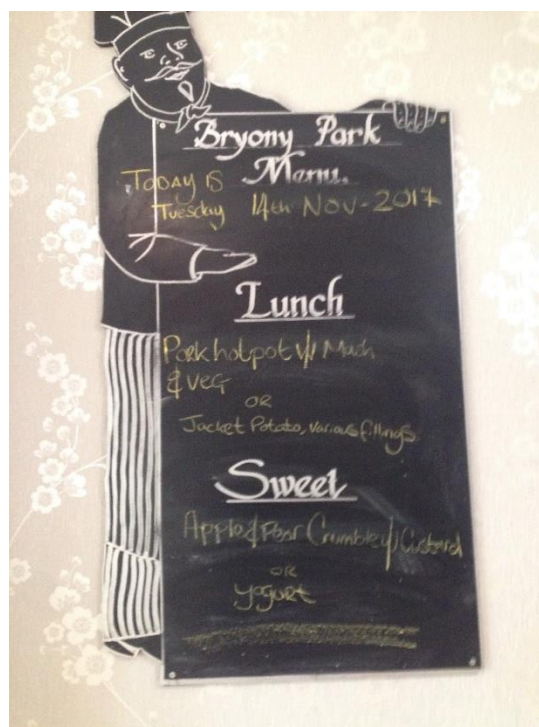 Bryony Park
Menu.
TODAY IS
Tuesday 14th NOV - 2017
Lunch
Pork hotpot w/ Mash
& VEG
OR
Jacket Potato, various fillings
Sweet
Apple & Pear Crumble w/ Custard
OR
yogurt